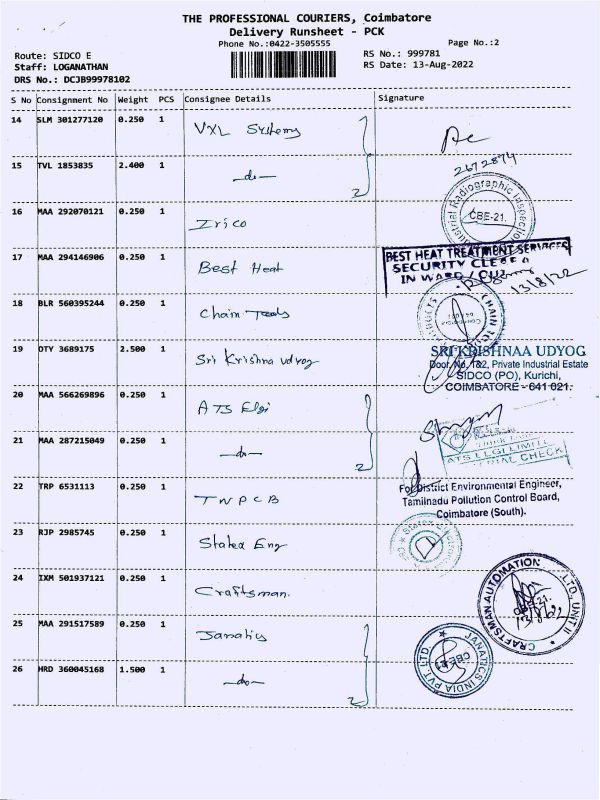 THE PROFESSIONAL COURIERS, Coimbatore
Delivery Runsheet - PCK
Phone No.:0422-3505555
Page No.:2
Route: SIDCO E
RS No.: 999781
Staff: LOGANATHAN
RS Date: 13-Aug-2022
DRS No.: DCJB99978102
S No Consignment No Weight PCS Consignee Details Signature
14 SLM 301277120 0.250 1 VXL Systems
2672874
15 TVL 1853835 2.400 1 -do- 2
Industrial Radiographic Inspection
CBE-21.
16 MAA 292070121 0.250 1 Irico
17 MAA 294146906 0.250 1 Best Heat
BEST HEAT TREATMENT SERVICES
SECURITY
IN WARD /
13/8/22
18 BLR 560395244 0.250 1 Chain Tools
CHAIN
19 OTY 3689175 2.500 1 Sri Krishna udyog
SRI KRISHNAA UDYOG
Door No, 1&2, Private Industrial Estate
SIDCO (PO), Kurichi,
COIMBATORE - 641 021.
20 MAA 566269896 0.250 1 ATS Elgi
21 MAA 287215049 0.250 1 -do- 2
ATS ELGI LIMITED
CHECK
22 TRP 6531113 0.250 1 TNPCB
For District Environmental Engineer,
Tamilnadu Pollution Control Board,
Coimbatore (South).
23 RJP 2985745 0.250 1 Statex Eng
Statex
24 IXM 501937121 0.250 1 Craftsman.
CRAFTSMAN AUTOMATION LTD., UNIT II
25 MAA 291517589 0.250 1 Janatics
JANATICS INDIA PVT. LTD.
26 HRD 360045168 1.500 1 -do- 2